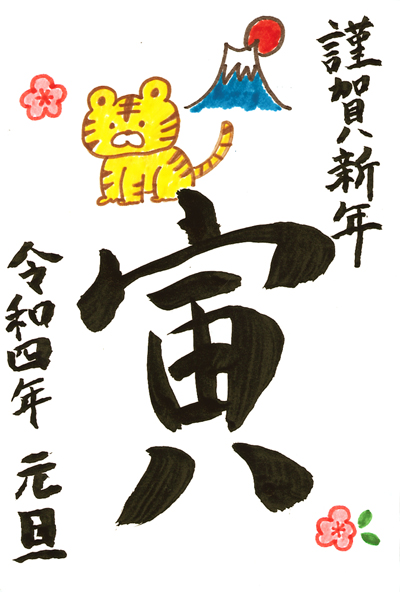 謹賀新年
寅
令和四年 元旦